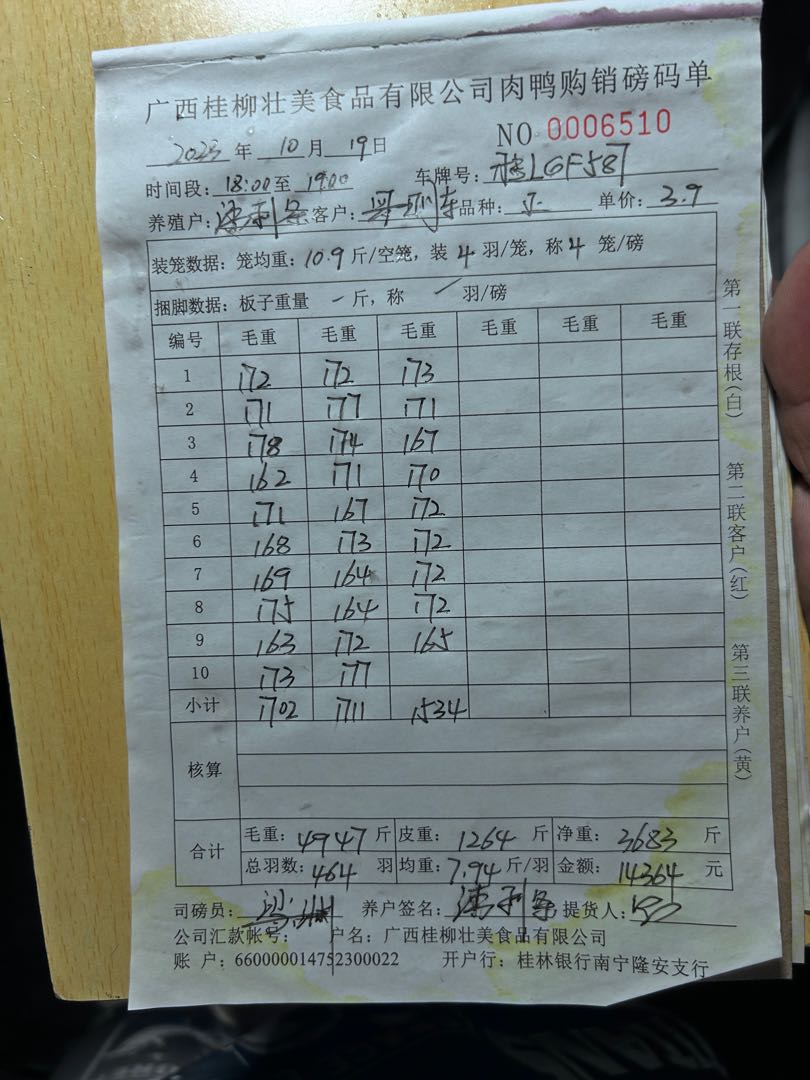 广西桂柳壮美食品有限公司肉鸭购销磅码单
2023 年 10 月 19 日 NO 0006510
时间段: 18:00 至 19:00 车牌号: LGF587
养殖户: 客户: 品种: 单价: 3.9
装笼数据: 笼均重: 10.9 斤/空笼, 装 4 羽/笼, 称 4 笼/磅
捆脚数据: 板子重量 一 斤, 称 / 羽/磅
编号 毛重 毛重 毛重 毛重 毛重 毛重
1 172 172 173
2 171 177 171
3 178 174 167
4 162 171 170
5 171 167 172
6 168 173 172
7 169 164 172
8 175 164 172
9 163 172 165
10 173 177
小计 1702 1711 1534
核算
合计 毛重: 4947 斤 皮重: 1264 斤 净重: 3683 斤
总羽数: 464 羽 均重: 7.94 斤/羽 金额: 14364 元
司磅员: 养户签名: 提货人:
公司汇款帐号: 户名: 广西桂柳壮美食品有限公司
账 户: 660000014752300022 开户行: 桂林银行南宁隆安支行
第一联存根(白)
第二联客户(红)
第三联养户(黄)